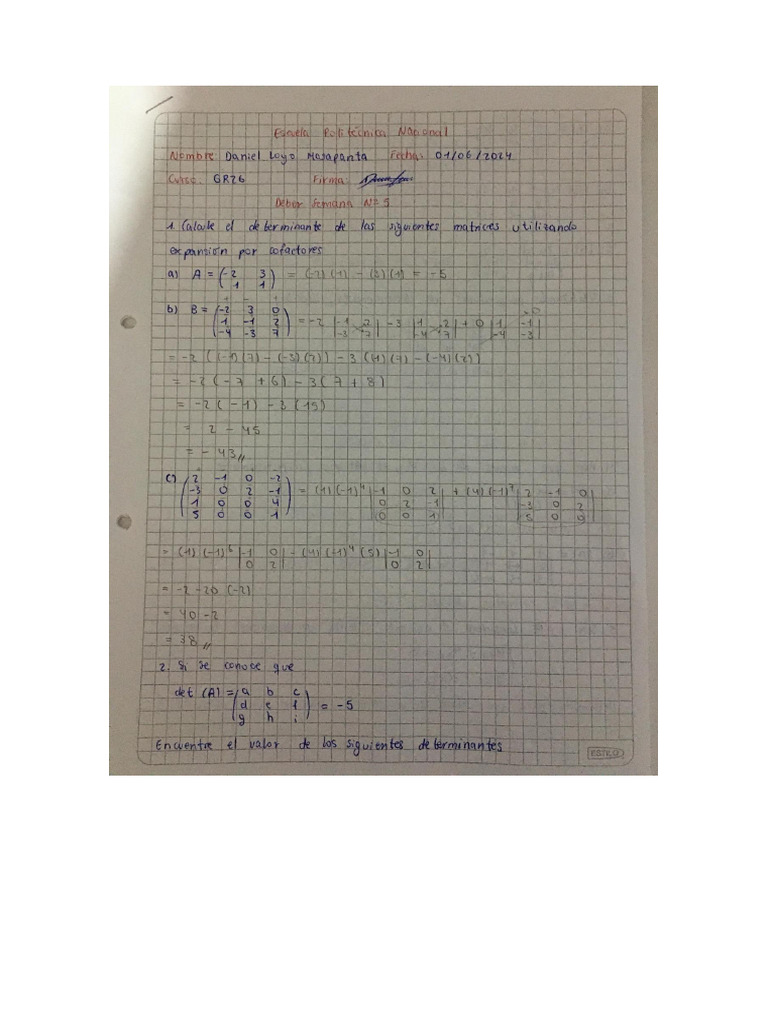 Escuela Politécnica Nacional
Nombre Daniel Loyo Masapanta Fecha: 01/06/2024
Curso. GR26 Firma:
Deber Semana Nº 5
1. Calcule el determinante de las siguientes matrices utilizando
expansión por cofactores
a) A = (-2 3 = (-2)(1) - (3)(1) = -5
1 1)
b) B = (-2 3 0 = -2 |-1 2| - 3 |1 2| + 0 |1 -1|
1 -1 2 |-3 7| |-4 7| |-4 -3|
-4 -3 7)
= -2 ((-1)(7) - (-3)(2)) - 3 ((1)(7) - (-4)(2))
= -2 (-7 + 6) - 3 (7 + 8)
= -2 (-1) - 3 (15)
= 2 - 45
= - 43 //
c) (2 -1 0 -2
-3 0 2 -1 = (1)(-1)⁴ |-1 0 2| + (4)(-1)⁷ |2 -1 0|
1 0 0 4 |0 2 -1| |-3 0 2|
5 0 0 1) |0 0 1| |5 0 0|
= (1)(-1)⁶ |-1 0| - (4)(-1)⁴ (5) |-1 0|
|0 2| |0 2|
= -2 - 20 (-2)
= 40 - 2
= 38 //
2. Si se conoce que
det (A) = (a b c
d e f = -5
g h i)
Encuentre el valor de los siguientes determinantes